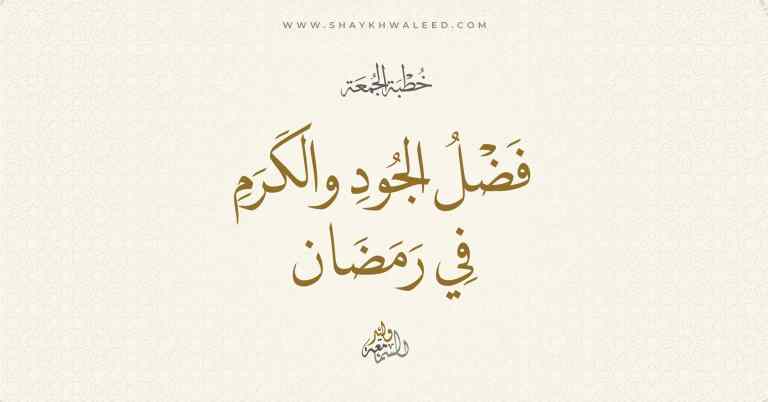 WWW.SHAYKHWALEED.COM
خُطْبَة الجُمعَة
فَضْلُ الجُودِ والكَرَمِ
فِي رَمَضَان
وليد